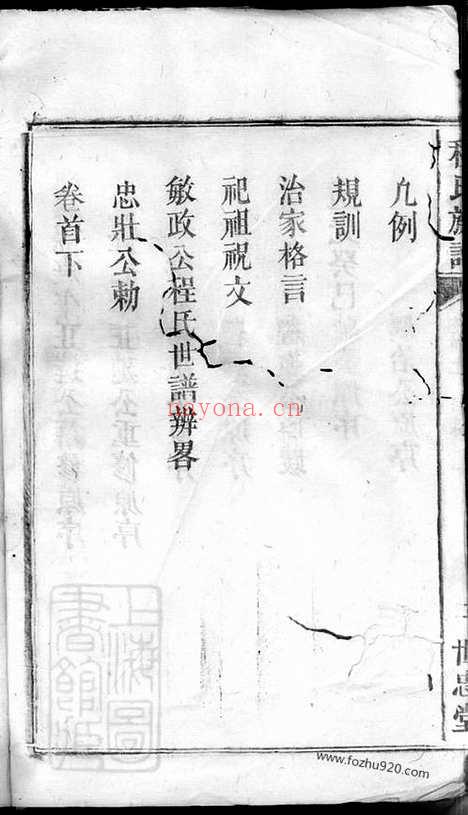 程氏族譜
世忠堂
凡例
規訓
治家格言
祀祖祝文
敏政公程氏世譜辨畧
忠壯公勅
卷首下
nayona.cn
上海圖
書館藏
www.fozhu920.com